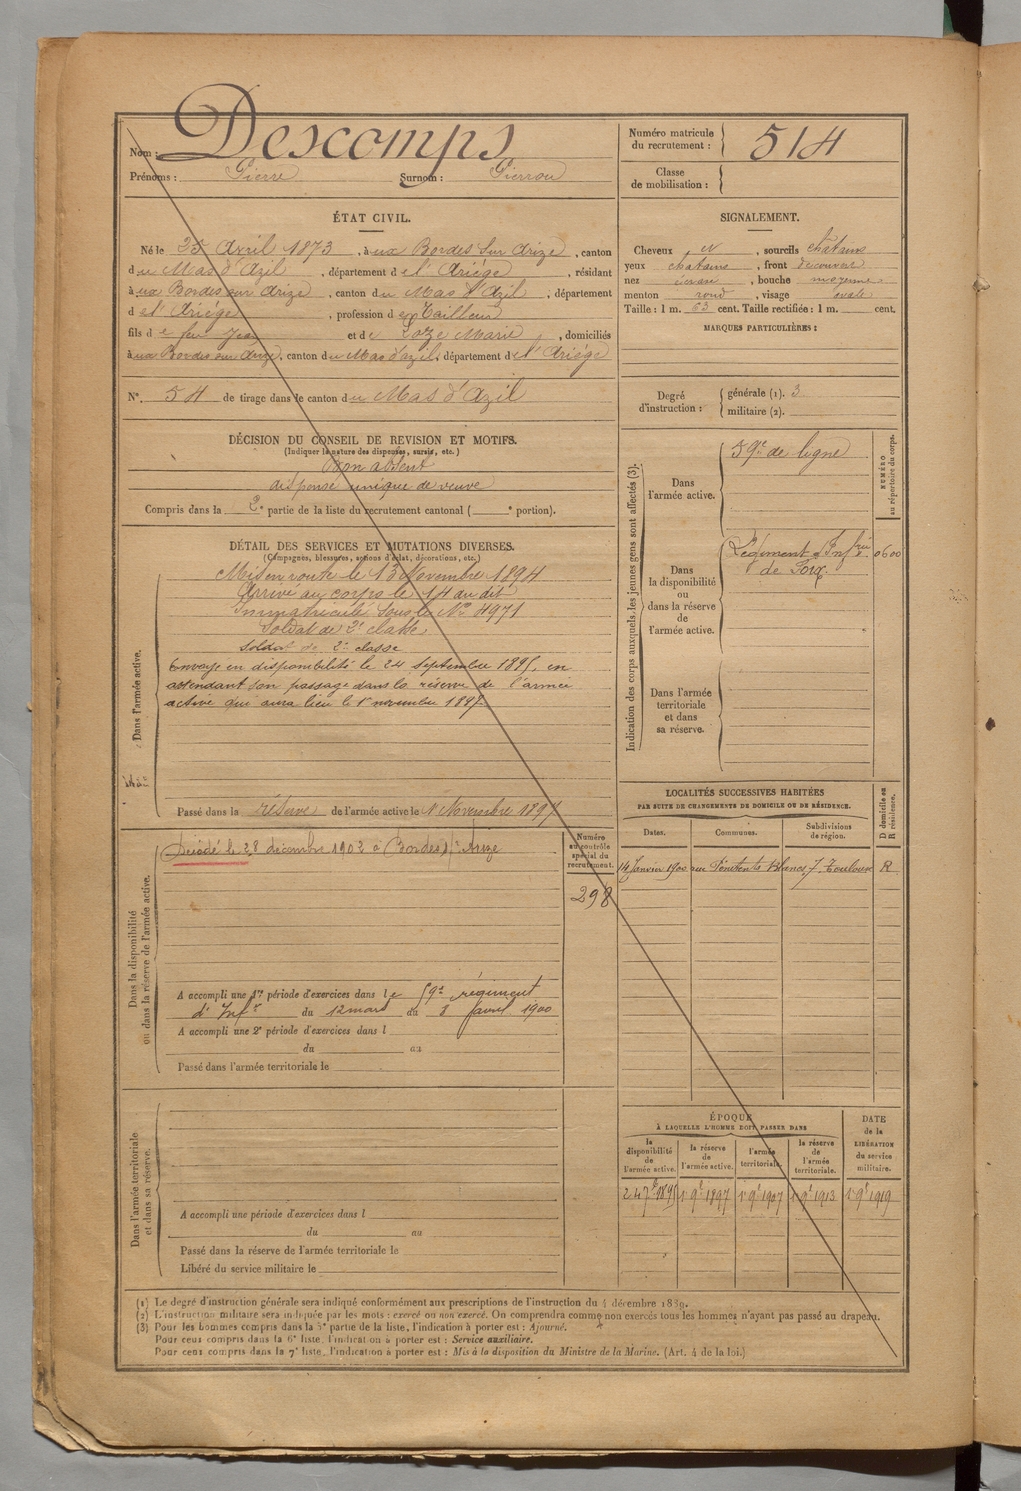 Nom : Descomps
Prénoms : Pierre Surnom : Pierrou
Numéro matricule du recrutement : 514
Classe de mobilisation :
ÉTAT CIVIL.
Né le 25 Avril 1873, à ux Bordes sur Arize, canton
du Mas d'Azil, département de l'Ariège, résidant
à ux Bordes sur Arize, canton du Mas d'Azil, département
d e l'Ariége, profession de Tailleur
fils de feu Jean et de Loze Marie, domiciliés
à ux Bordes sur Arize, canton du Mas d'azil, département de l'Ariége
N°. 54 de tirage dans le canton du Mas d'Azil
SIGNALEMENT.
Cheveux et, sourcils châtains
yeux chatains, front découvert
nez, bouche moyenne
menton rond, visage ovale
Taille : 1 m. 63 cent. Taille rectifiée : 1 m. cent.
MARQUES PARTICULIÈRES :
Degré d'instruction : générale (1). 3
militaire (2).
DÉCISION DU CONSEIL DE REVISION ET MOTIFS.
(Indiquer la nature des dispenses, sursis, etc.)
Bon absent
dispensé unique de veuve
Compris dans la 2e partie de la liste du recrutement cantonal ( e portion).
DÉTAIL DES SERVICES ET MUTATIONS DIVERSES.
(Campagnes, blessures, actions d'éclat, décorations, etc.)
Dans l'armée active.
Mis en route le 13 Novembre 1894
Arrivé au corps le 14 au dit
Immatriculé sous le No 4971
Soldat de 2e classe
Soldat de 2e classe
Envoyé en disponibilité le 24 septembre 1895, en
attendant son passage dans la réserve de l'armée
active qui aura lieu le 1r novembre 1897
Passé dans la réserve de l'armée active le 1 Novembre 1897
Indication des corps auxquels les jeunes gens sont affectés (3).
NUMÉRO au répertoire du corps.
Dans l'armée active.
59e de ligne
Dans la disponibilité ou dans la réserve de l'armée active.
Régiment d'Infrie
de Foix
0600
Dans l'armée territoriale et dans sa réserve.
LOCALITÉS SUCCESSIVES HABITÉES
PAR SUITE DE CHANGEMENTS DE DOMICILE OU DE RÉSIDENCE.
Dates. Communes. Subdivisions de région. D domicile ou R résidence.
14 Janvier 1900 rue Pénitents Blancs, 7 Toulouse R
Dans la disponibilité ou dans la réserve de l'armée active.
Numéro au contrôle spécial du recrutement.
298
Décédé le 28 décembre 1902 à Bordes s/ Arize
A accompli une 1re période d'exercices dans le 59e régiment
d'Infie du 12 mars au 8 avril 1900
A accompli une 2e période d'exercices dans l
du au
Passé dans l'armée territoriale le
Dans l'armée territoriale et dans sa réserve.
A accompli une période d'exercices dans l
du au
Passé dans la réserve de l'armée territoriale le
Libéré du service militaire le
ÉPOQUE
À LAQUELLE L'HOMME DOIT PASSER DANS
la disponibilité de l'armée active. la réserve de l'armée active. l'armée territoriale. la réserve de l'armée territoriale.
DATE de la LIBÉRATION du service militaire.
24 7bre 1895 1r 9e 1897 1r 9e 1907 1r 9e 1913 1r 9e 1919
(1) Le degré d'instruction générale sera indiqué conformément aux prescriptions de l'instruction du 4 décembre 1889.
(2) L'instruction militaire sera indiquée par les mots : exercé ou non exercé. On comprendra comme non exercés tous les hommes n'ayant pas passé au drapeau.
(3) Pour les hommes compris dans la 5e partie de la liste, l'indication à porter est : Ajourné.
Pour ceux compris dans la 6e liste, l'indication à porter est : Service auxiliaire.
Pour ceux compris dans la 7e liste, l'indication à porter est : Mis à la disposition du Ministre de la Marine. (Art. 4 de la loi.)